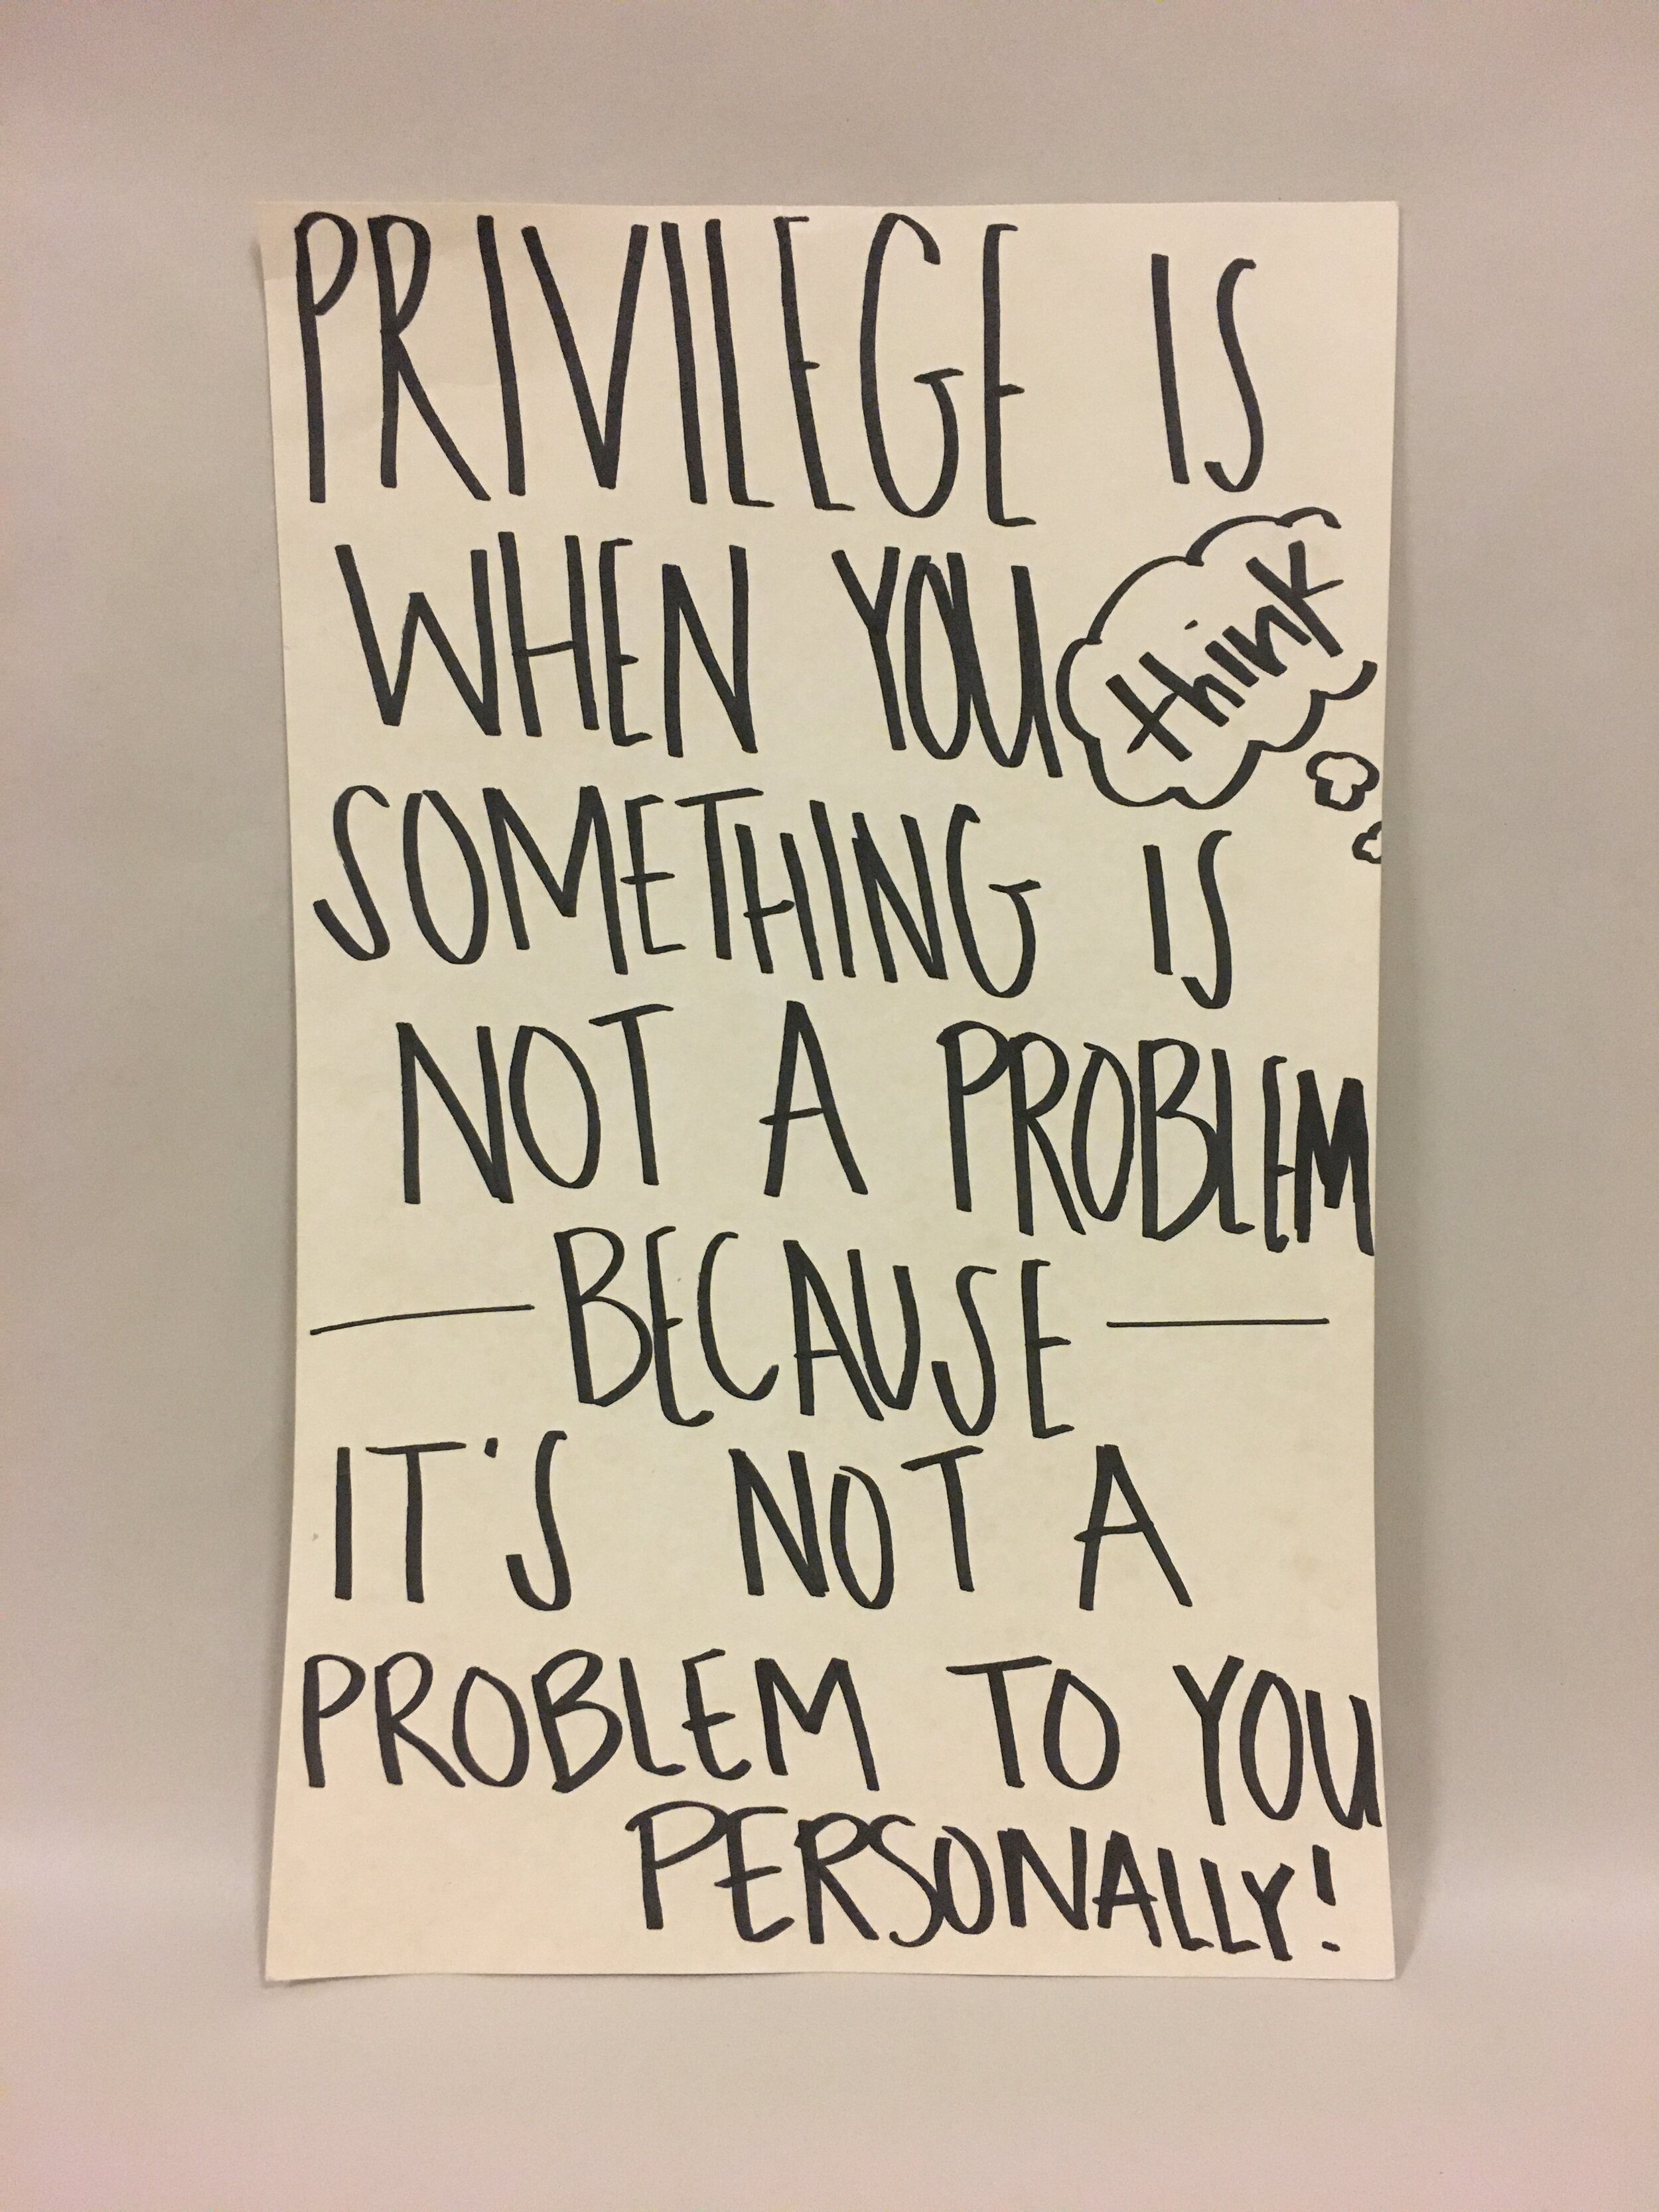 PRIVILEGE IS
WHEN YOU think
SOMETHING IS
NOT A PROBLEM
— BECAUSE —
IT'S NOT A
PROBLEM TO YOU
PERSONALLY!